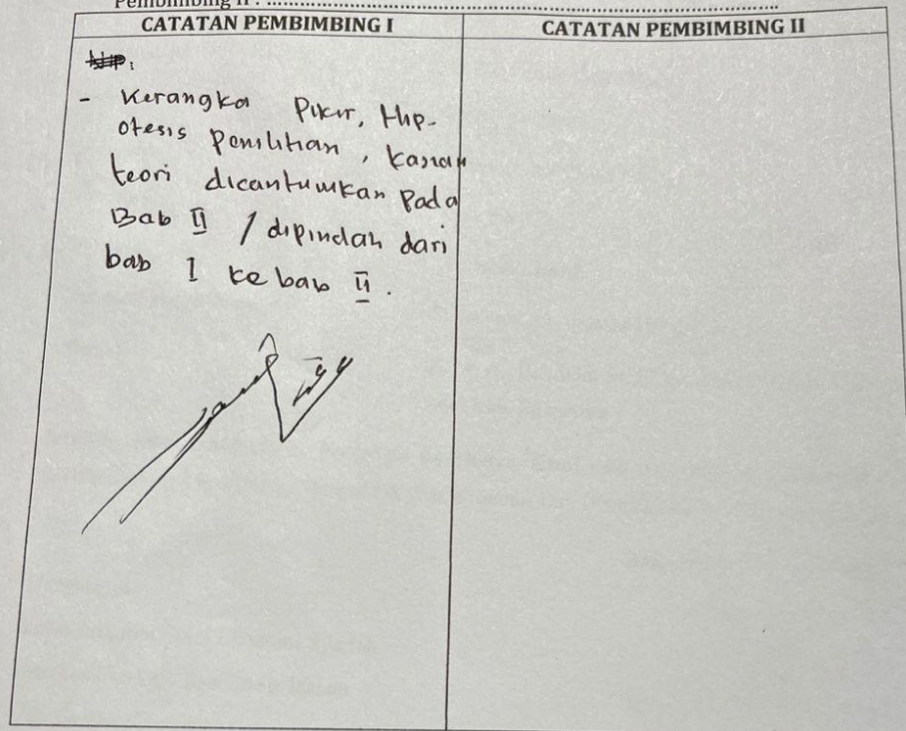 Pembimbing II : ....................................................................................
CATATAN PEMBIMBING I
CATATAN PEMBIMBING II
- Kerangka Pikir, Hip-
otesis Penilitian, Kajian
teori dicantumkan Pada
Bab II / dipindah dari
bab I ke bab II.